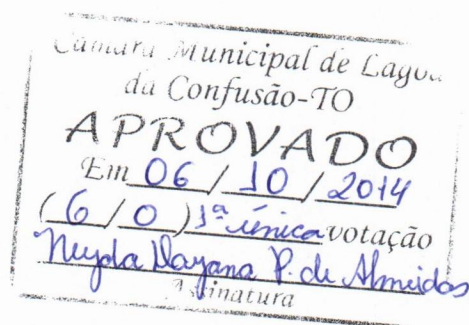 Câmara Municipal de Lagoa
da Confusão-TO
APROVADO
Em 06 / 10 / 2014
( 6 / 0 ) 1ª única votação
Neyda Dayana P. de Almeidas
Assinatura